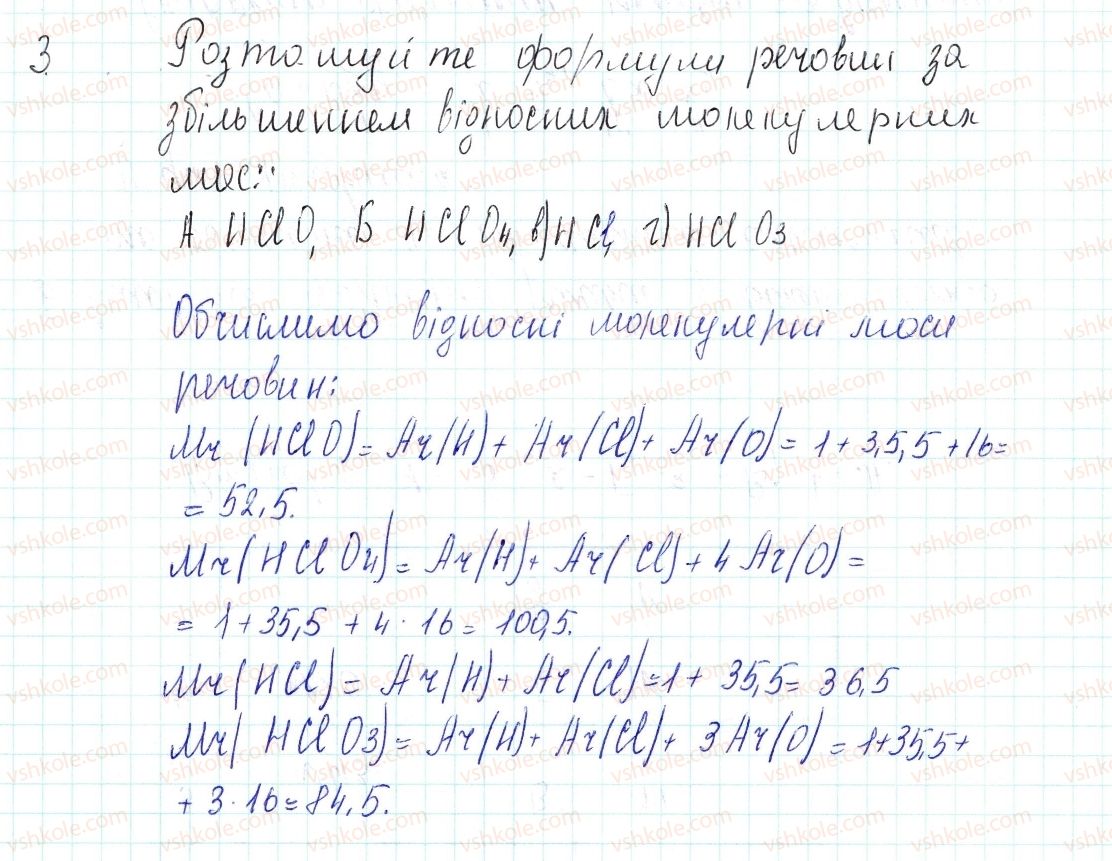 3. Розташуйте формули речовин за
збільшенням відносних молекулярних
мас:
А HClO, Б HClO4, в) HCl, г) HClO3
Обчислимо відносні молекулярні маси
речовин:
Mr (HClO) = Ar(H) + Ar(Cl) + Ar(O) = 1 + 35,5 + 16 =
= 52,5.
Mr (HClO4) = Ar(H) + Ar(Cl) + 4 Ar(O) =
= 1 + 35,5 + 4 · 16 = 100,5.
Mr (HCl) = Ar(H) + Ar(Cl) = 1 + 35,5 = 36,5
Mr (HClO3) = Ar(H) + Ar(Cl) + 3 Ar(O) = 1 + 35,5 +
+ 3 · 16 = 84,5.
vshkole.com